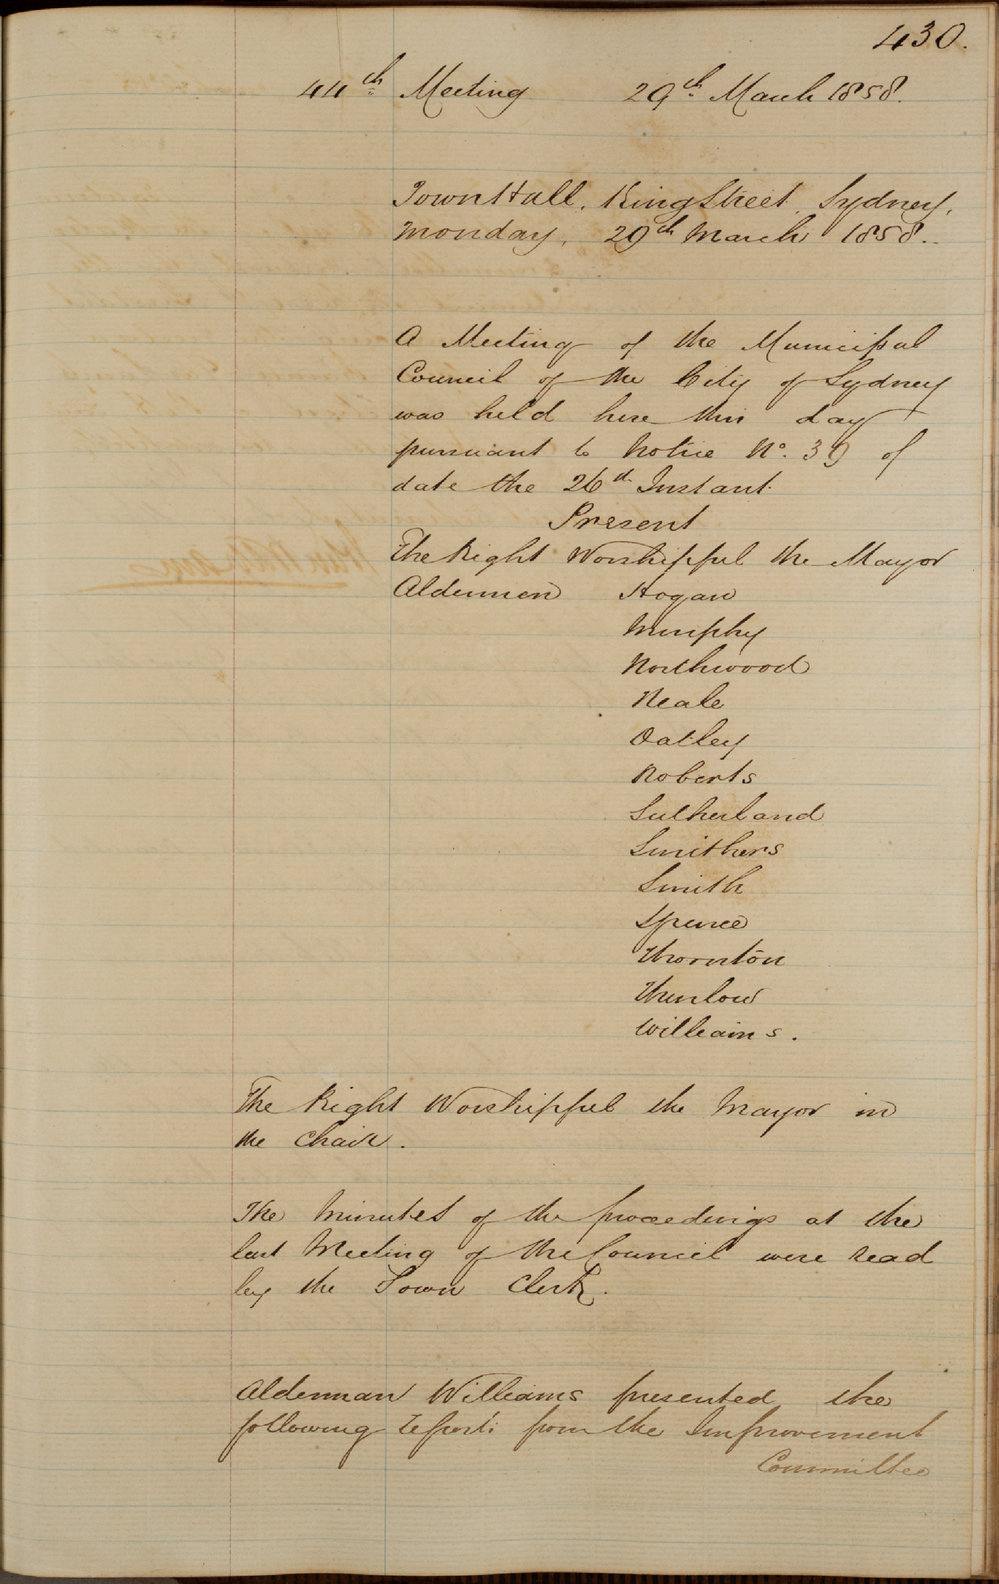 430.
44th Meeting 29th March 1858.
Town Hall, King Street, Sydney,
Monday, 29th March 1858.
A Meeting of the Municipal
Council of the City of Sydney
was held here this day
pursuant to Notice No. 39 of
date the 26th Instant.
Present
The Right Worshipful the Mayor
Aldermen Hogan
Murphy
Northwood
Neale
Oatley
Roberts
Sutherland
Smithers
Smith
Spence
Thornton
Thurlow
Williams.
The Right Worshipful the Mayor in
the Chair.
The Minutes of the proceedings at the
last Meeting of the Council were read
by the Town Clerk.
Alderman Williams presented the
following reports from the Improvement
Committee